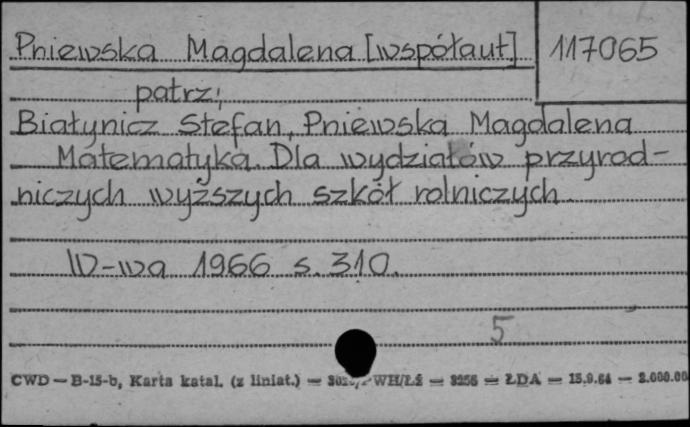 Pniewska Magdalena [współaut] 117065
patrz:
Białynicz Stefan, Pniewska Magdalena
Matematyka. Dla wydziałów przyrod-
niczych wyższych szkół rolniczych.
W-wa 1966 s. 310.
5
CWD — B-15-b, Karta katal. (z liniat.) — WH/Łż — 3256 — ŁDA — 15.9.64 — 2.000.00